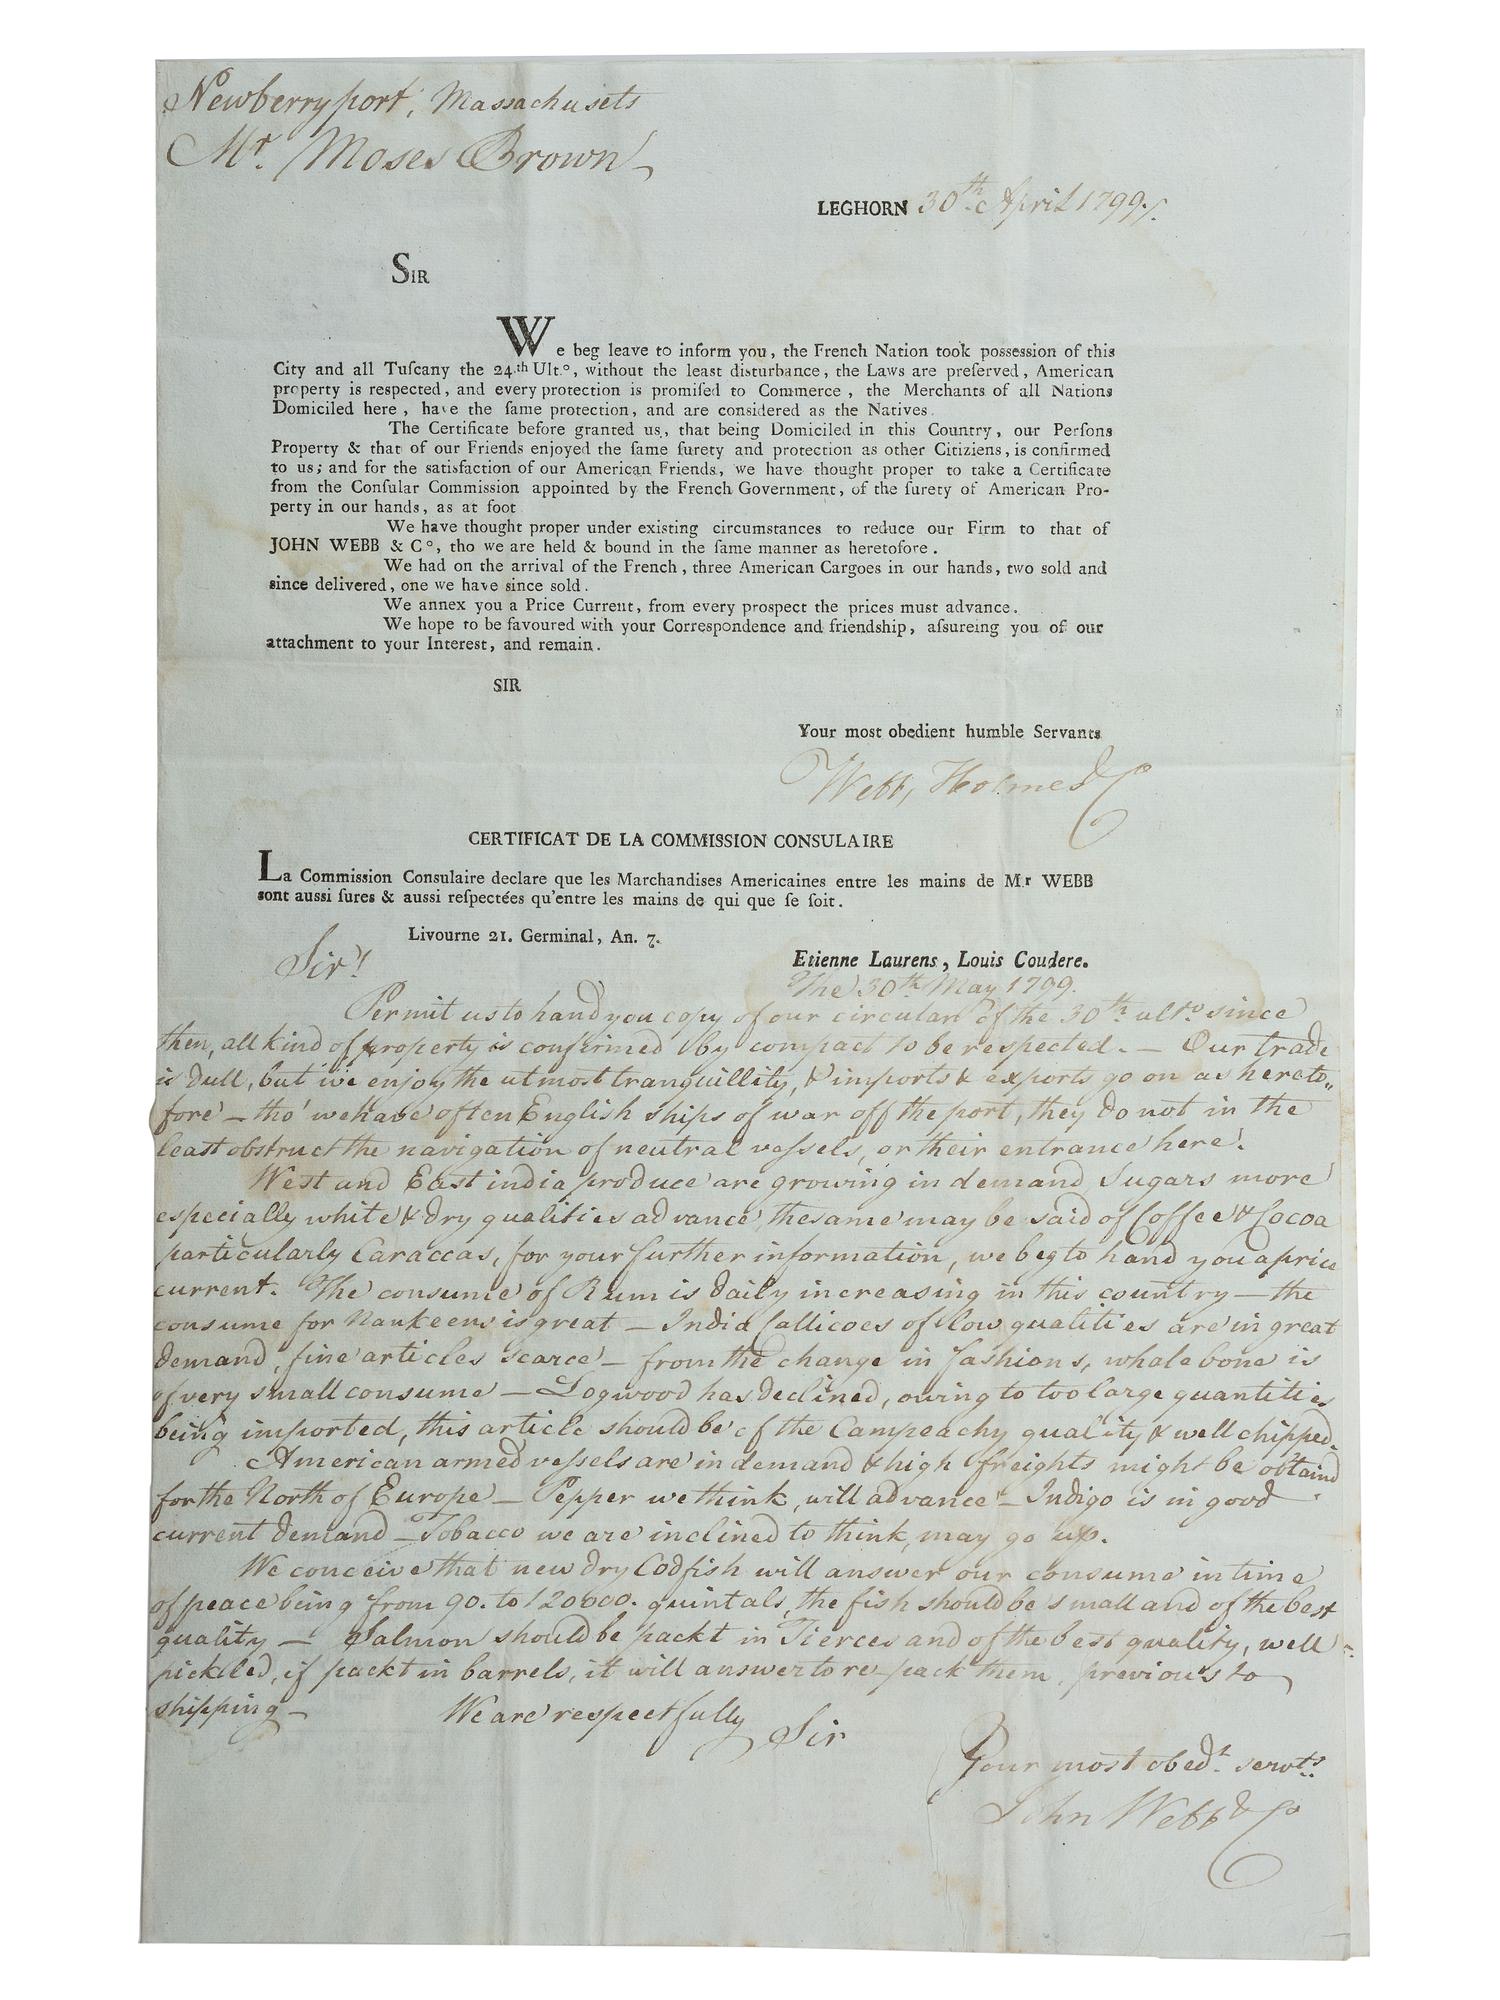 Newberryport, Massachusets
Mr. Moses Brown
LEGHORN 30th April 1799./.
SIR
We beg leave to inform you, the French Nation took possession of this
City and all Tuſcany the 24.th Ult.o, without the least diſturbance, the Laws are preſerved, American
property is respected, and every protection is promiſed to Commerce, the Merchants of all Nations
Domiciled here, have the ſame protection, and are considered as the Natives.
The Certificate before granted us, that being Domiciled in this Country, our Perſons
Property & that of our Friends enjoyed the ſame ſurety and protection as other Citiziens, is confirmed
to us; and for the satisfaction of our American Friends, we have thought proper to take a Certificate
from the Conſular Commission appointed by the French Government, of the ſurety of American Pro-
perty in our hands, as at foot
We have thought proper under existing circumstances to reduce our Firm to that of
JOHN WEBB & Co, tho we are held & bound in the ſame manner as heretofore.
We had on the arrival of the French, three American Cargoes in our hands, two sold and
since delivered, one we have since sold.
We annex you a Price Current, from every prospect the prices must advance.
We hope to be favoured with your Correspondence and friendship, aſsureing you of our
attachment to your Interest, and remain.
SIR
Your most obedient humble Servants
Webb, Holmes & Co
CERTIFICAT DE LA COMMISSION CONSULAIRE
La Commission Consulaire declare que les Marchandises Americaines entre les mains de M.r WEBB
sont aussi ſures & aussi reſpectées qu'entre les mains de qui que ſe ſoit.
Livourne 21. Germinal, An. 7.
Etienne Laurens, Louis Coudere.
Sir!
The 30th May 1799.
Permit us to hand you copy of our circular of the 30th ulto since
then, all kind of property is confirmed by compact to be respected. — Our trade
is dull, but we enjoy the utmost tranquillity, & imports & exports go on as hereto„
fore — tho' we have often English ships of war off the port, they do not in the
least obstruct the navigation of neutral veſsels, or their entrance here.
West and East india produce are growing in demand Sugars more
especially white & dry qualities advance, the same may be said of Coffee & Cocoa
particularly Caraccas, for your further information, we beg to hand you a price
current. The consume of Rum is daily increasing in this country — the
consume for Nankeens is great — India Callicoes of low qualities are in great
demand, fine articles scarce — from the change in fashions, whale bone is
of very small consume — Logwood has declined, owing to too large quantities
being imported, this article should be of the Campeachy quality & well chipped.
American armed veſsels are in demand & high freights might be obtaind
for the North of Europe — Pepper we think, will advance — Indigo is in good
current demand — Tobacco we are inclined to think, may go up.
We conceive that new dry Codfish will answer our consume in time
of peace being from 90. to 120000. quintals, the fish should be small and of the best
quality — Salmon should be packt in Tierces and of the best quality, well
pickled, if packt in barrels, it will answer to re-pack them, previous to
shipping — We are respectfully Sir
Your most obedt. servts.
John Webb & Co